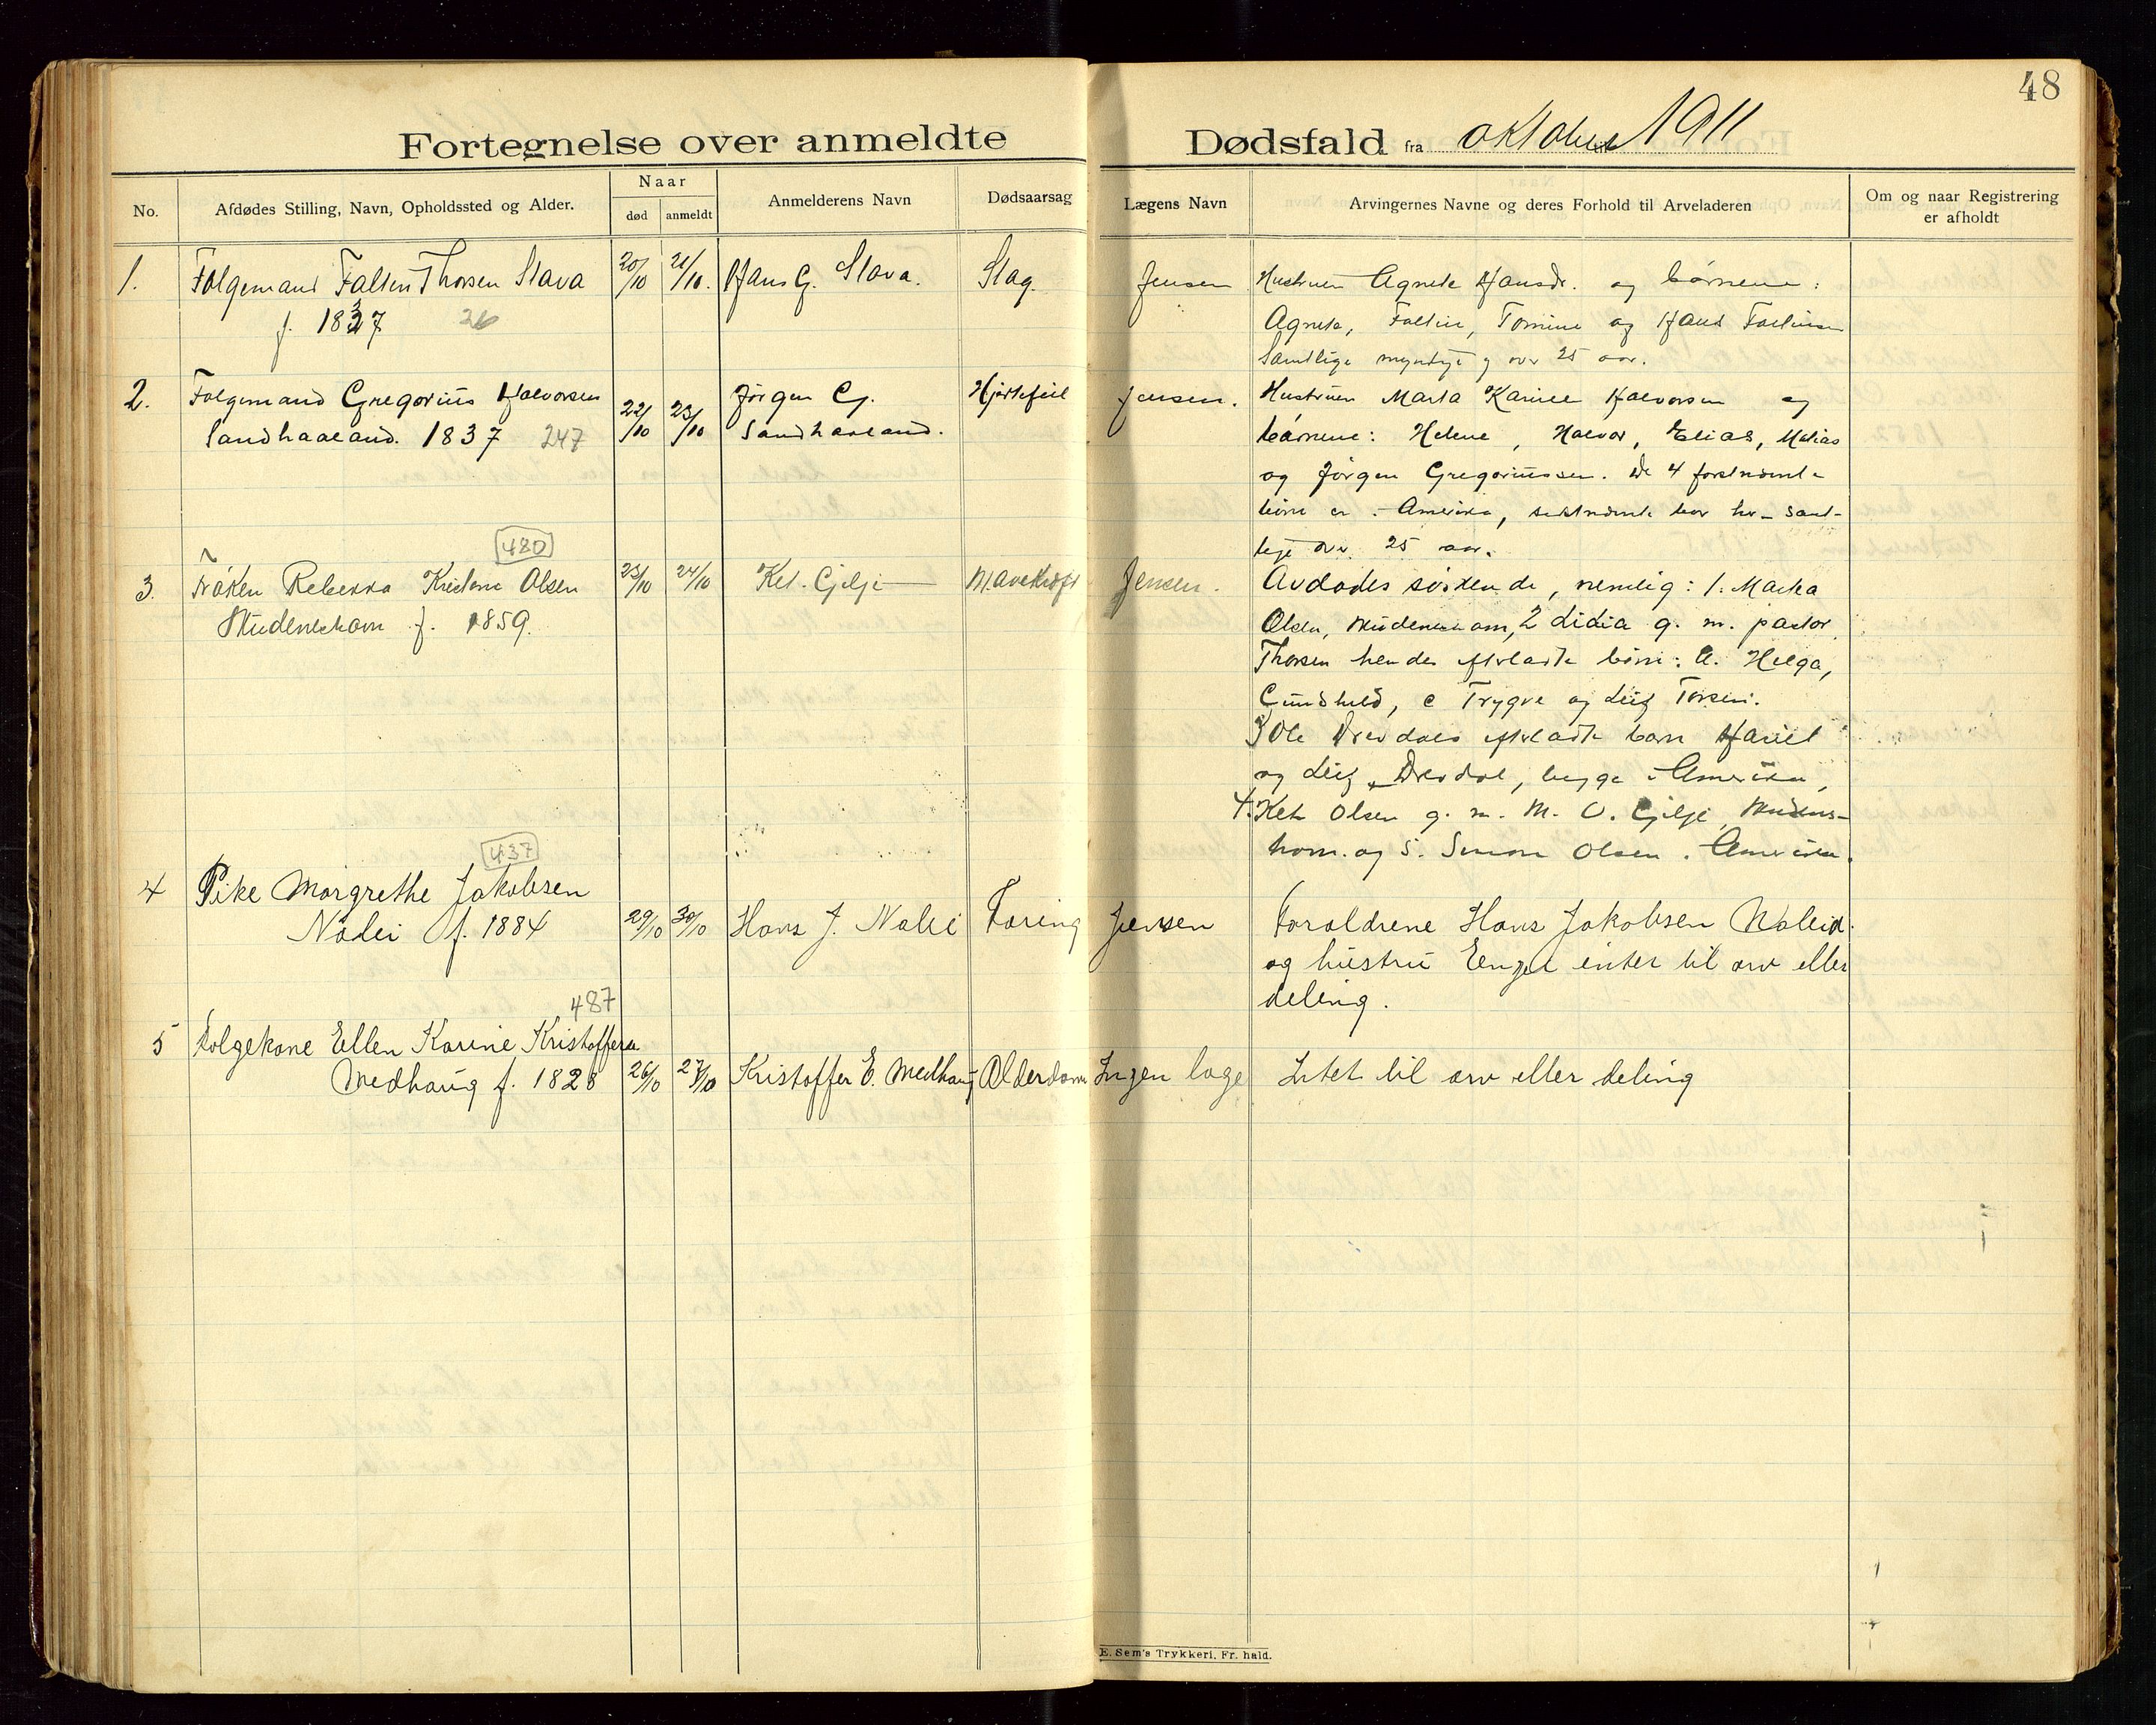 48
Fortegnelse over anmeldte Dødsfald fra oktober 1911
No.
Afdødes Stilling, Navn, Opholdssted og Alder.
Naar
død
anmeldt
Anmelderens Navn
Dødsaarsag
Lægens Navn
Arvingernes Navne og deres Forhold til Arveladeren
Om og naar Registrering
er afholdt
1.
Folgemand Falten Thorsen Stava
f. 1837 26
20/10
21/10.
Hans G. Stava.
Slag.
Jensen
Hustruen Agnete Hansdr. og børnene:
Agnete, Faltin, Tomine og Hans Faltinsen
samtlige myndige og over 25 aar.
2.
Folgemand Gregorius Halvorsen
Sandhaaland. 1837 247
22/10
23/10
Jørgen G.
Sandhaaland.
Hjertefeil
Jensen.
Hustruen Marta Karine Halvorsen og
børnene: Helene, Halvor, Elias, Matias
og Jørgen Gregoriussen. De 4 førstnævnte
børn er i Amerika, sidstnævnte bor her - samt-
lige over 25 aar.
480
3.
Frøken Rebekka Kristine Olsen
Skudeneshavn f. 1859.
23/10
24/10
Ket. Gilje
Mavekræft
Jensen.
Avdødes søskende, nemlig: 1. Marta
Olsen, Skudeneshavn, 2 Lidia g. m. pastor
Thorsen hendes efterladte børn: a. Helga,
Gundhild, c Trygve og Leif Torsen.
3 Ole Dredals efterladte barn Hariet
og Leif Dredal, begge i Amerika,
4. Ket Olsen g. m. M. O. Gilje, Skudenes-
havn. og 5. Simon Olsen i Amerika.
437
4
Pike Margrethe Jakobsen
Nålei f. 1884
29/10
30/10
Hans J. Nalei
Tæring
Jensen
Forældrene Hans Jakobsen Naleid
og hustru Engel intet til arv eller
deling.
487
5
Folgekone Ellen Karine Kristoffersen
Medhaug f. 1828
26/10
27/10
Kristoffer E. Medhaug
Alderdom
Ingen læge
Intet til arv eller deling
E. Sem's Trykkeri, Fr. hald.